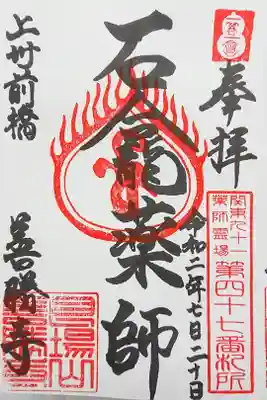 奉拝
関東九十一
薬師霊場
第四十七番札所
令和二年七月二十日
石龕薬師
上州前橋
善勝寺